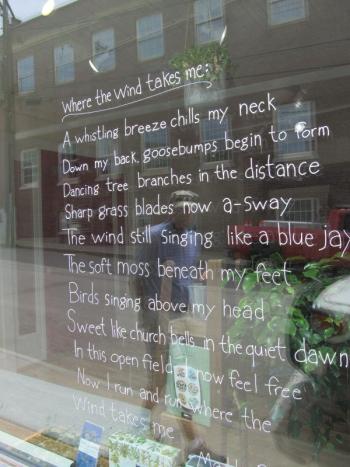 Where the wind takes me:
A whistling breeze chills my neck
Down my back, goosebumps begin to form
Dancing tree branches in the distance
Sharp grass blades now a-sway
The wind still singing like a blue jay
The soft moss beneath my feet
Birds singng above my head
Sweet like church bells in the quiet dawn
In this open field I now feel free
Now I run and run where the
Wind takes me